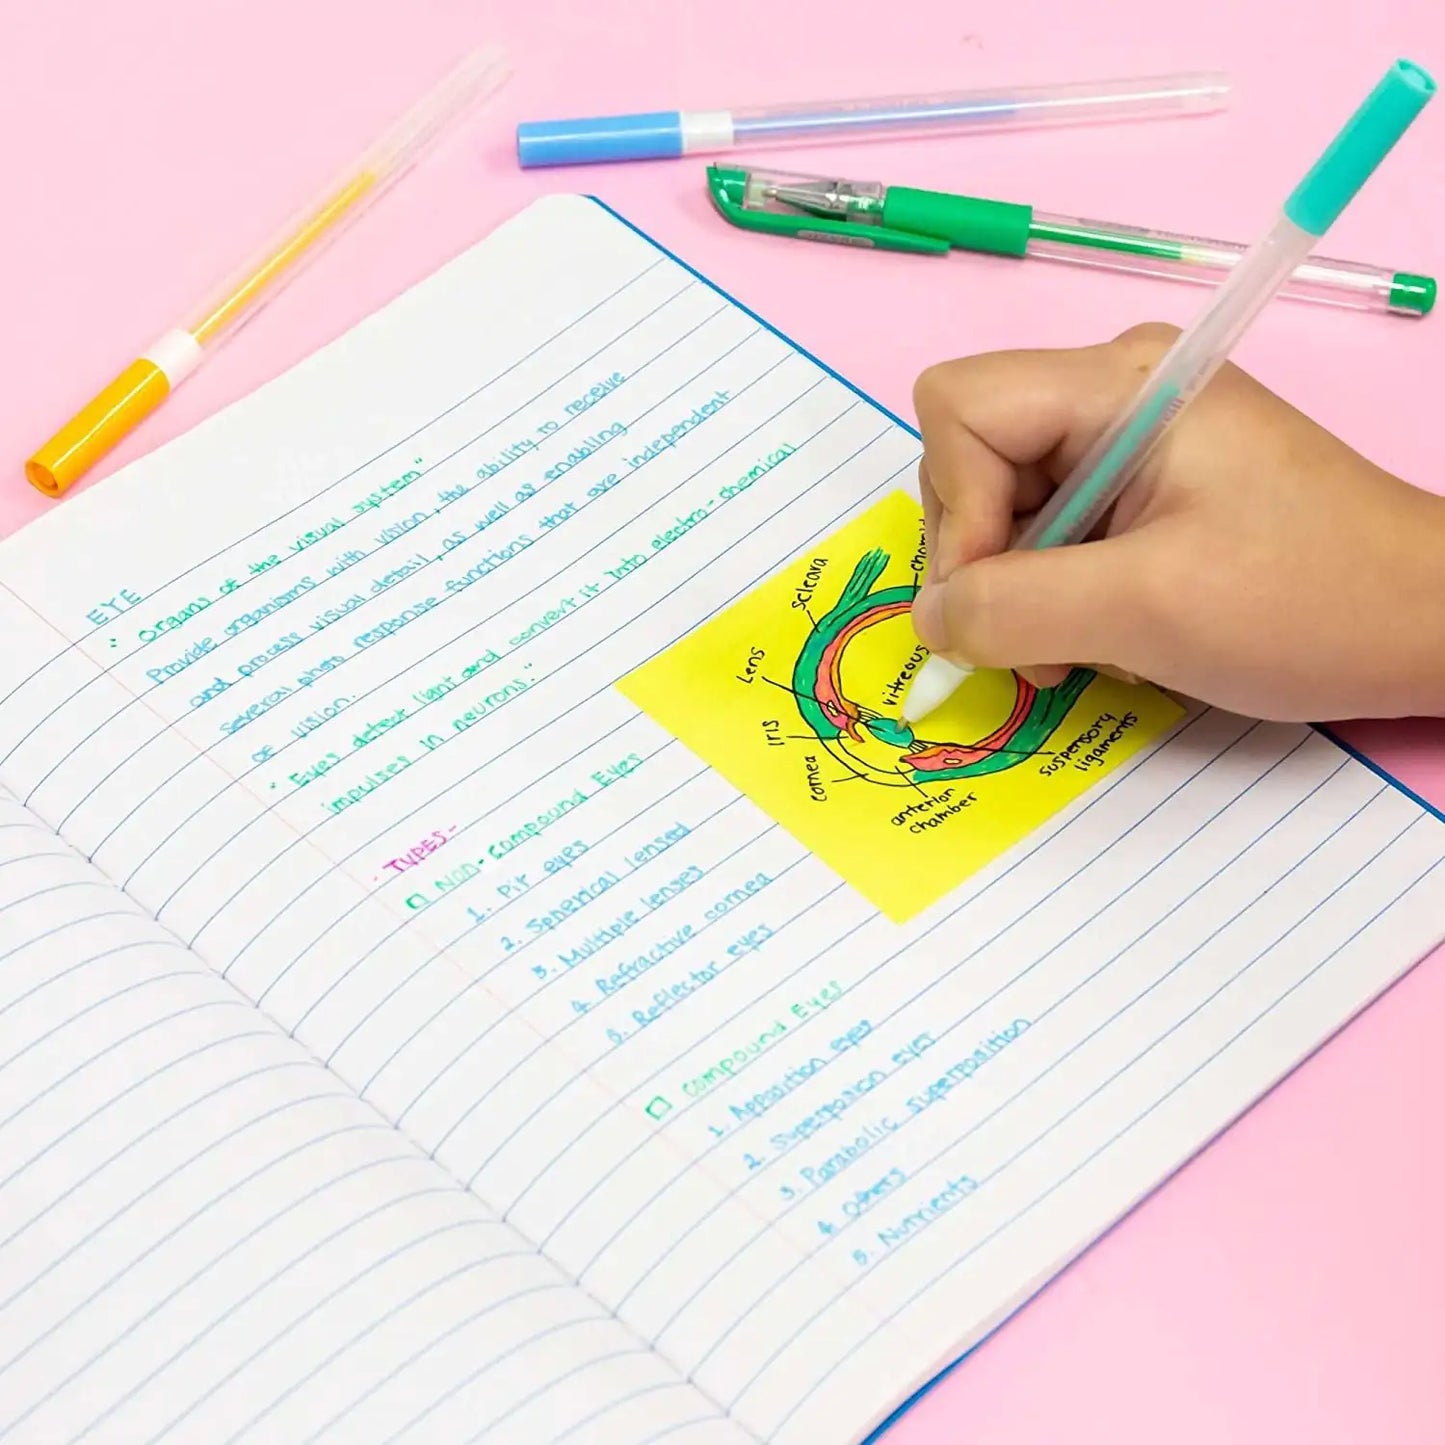 EYE
" organs of the visual system"
Provide organisms with vision, the ability to receive
and process visual detail, as well as enabling
several photo response functions that are independent
of vision.
" Eyes detect light and convert it into electro-chemical
impulses in neurons."
- TYPES-
Non-Compound Eyes
1. Pit eyes
2. Spherical lensed
3. Multiple lenses
4. Refractive cornea
5. Reflector eyes
Compound Eyes
1. Apposition eyes
2. Superposition eyes
3. Parabolic superposition
4. Others
5. Nutrients
scleara
Lens
Iris
cornea
vitreous
anterion
chamber
suspensory
ligaments